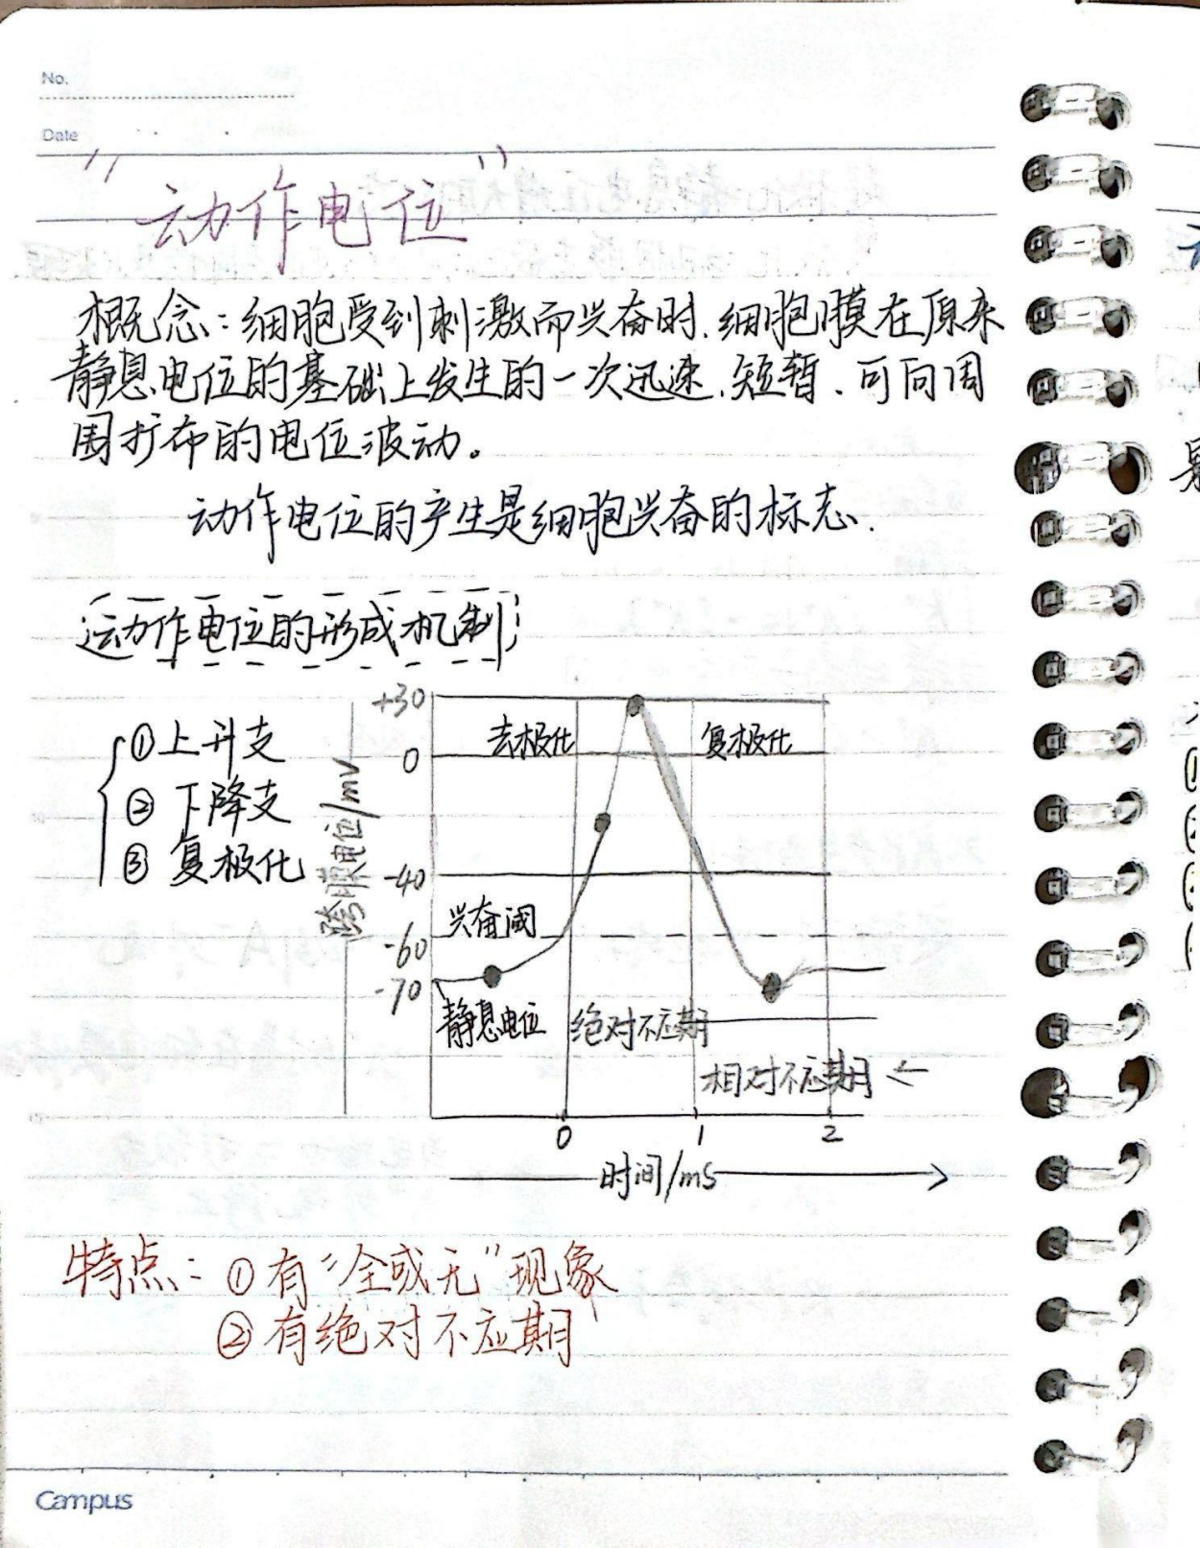 No.
Date
"动作电位"
概念:细胞受到刺激而兴奋时.细胞膜在原来
静息电位的基础上发生的一次迅速.短暂.可向周
围扩布的电位波动。
动作电位的产生是细胞兴奋的标志.
动作电位的形成机制
①上升支
②下降支
③复极化
跨膜电位/mV
+30
去极化 复极化
0
-40
兴奋阈
-60
-70
静息电位 绝对不应期
相对不应期 ←
0 1 2
时间/ms
特点:①有"全或无"现象
②有绝对不应期
Campus